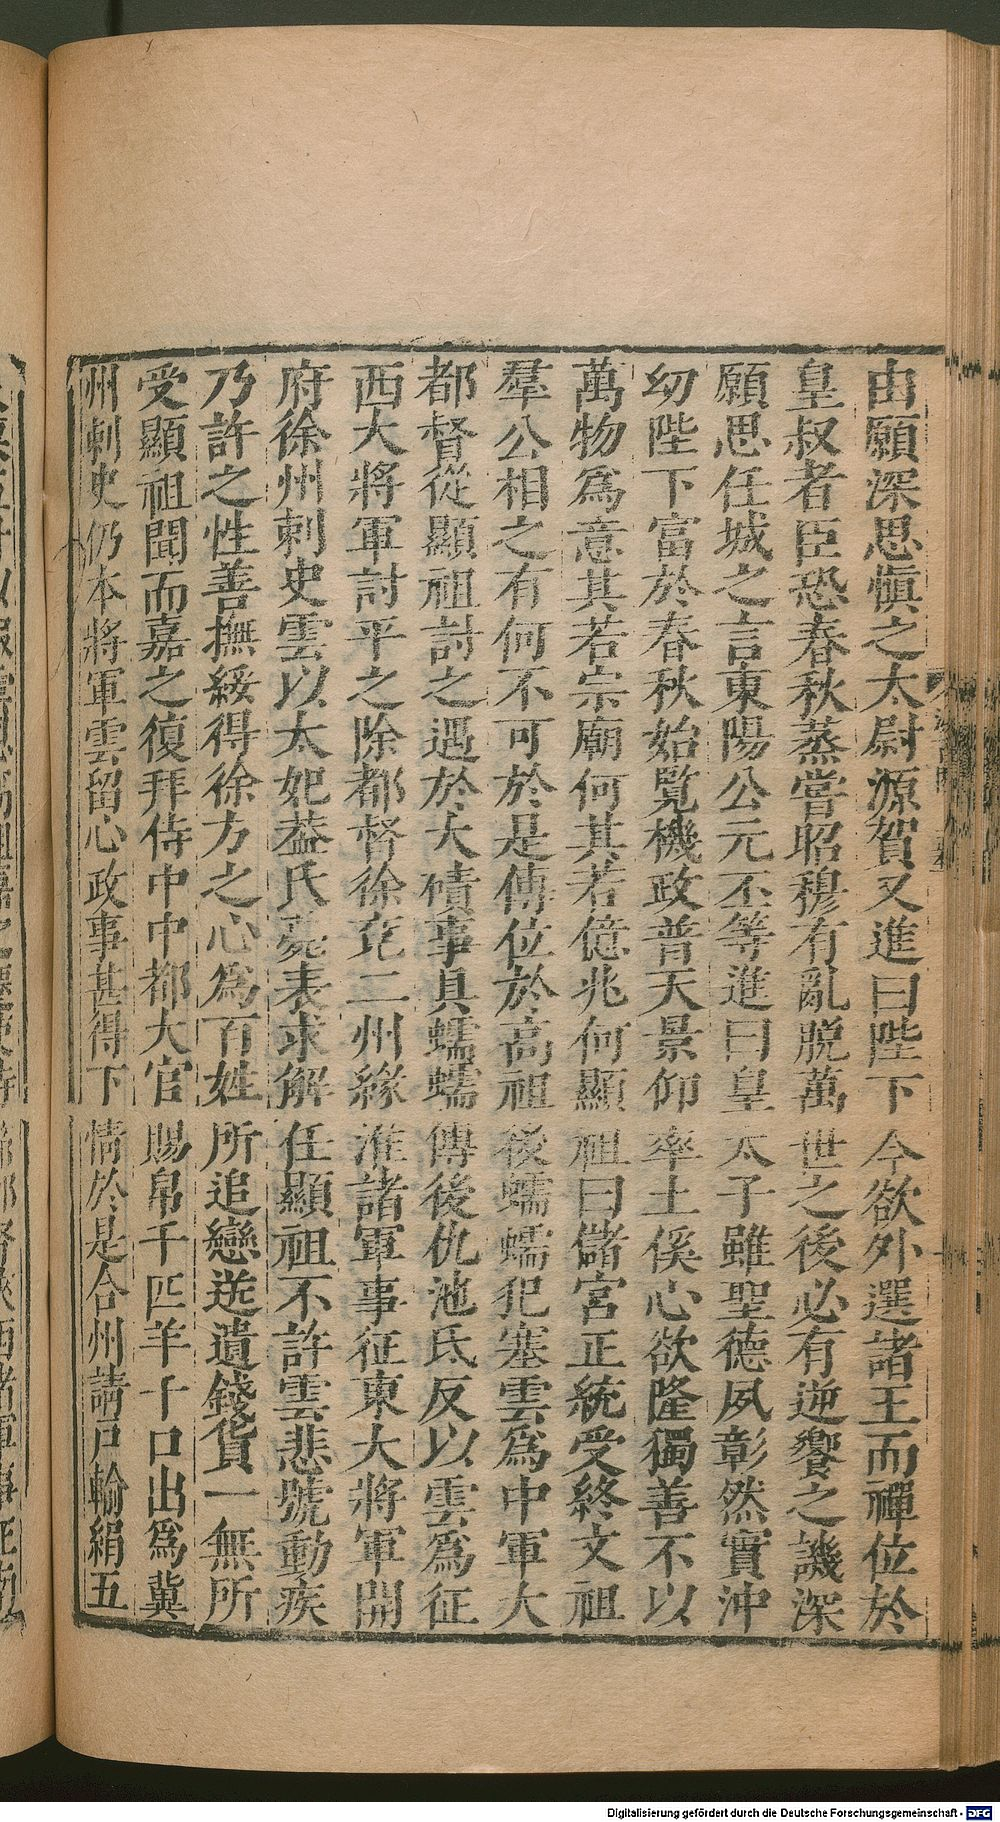 由願深思慎之太尉源賀又進曰陛下今欲外選諸王而禪位於
皇叔者臣恐春秋蒸嘗昭穆有亂脫萬世之後必有逆饗之譏深
願思任城之言東陽公元丕等進曰皇太子雖聖德夙彰然實沖
幼陛下富於春秋始覽機政普天景仰率土傒心欲隆獨善不以
萬物爲意其若宗廟何其若億兆何顯祖曰儲宮正統受終文祖
羣公相之有何不可於是傳位於高祖後蠕蠕犯塞雲爲中軍大
都督從顯祖討之遇於大磧事具蠕蠕傳後仇池氐反以雲爲征
西大將軍討平之除都督徐兗二州緣淮諸軍事征東大將軍開
府徐州刺史雲以太妃蓋氏薨表求解任顯祖不許雲悲號動疾
乃許之性善撫綏得徐方之心爲百姓所追戀送遺錢貨一無所
受顯祖聞而嘉之復拜侍中中都大官賜帛千匹羊千口出爲冀
州刺史仍本將軍雲留心政事甚得下情於是合州請戶輸絹五
Digitalisierung gefördert durch die Deutsche Forschungsgemeinschaft - DFG